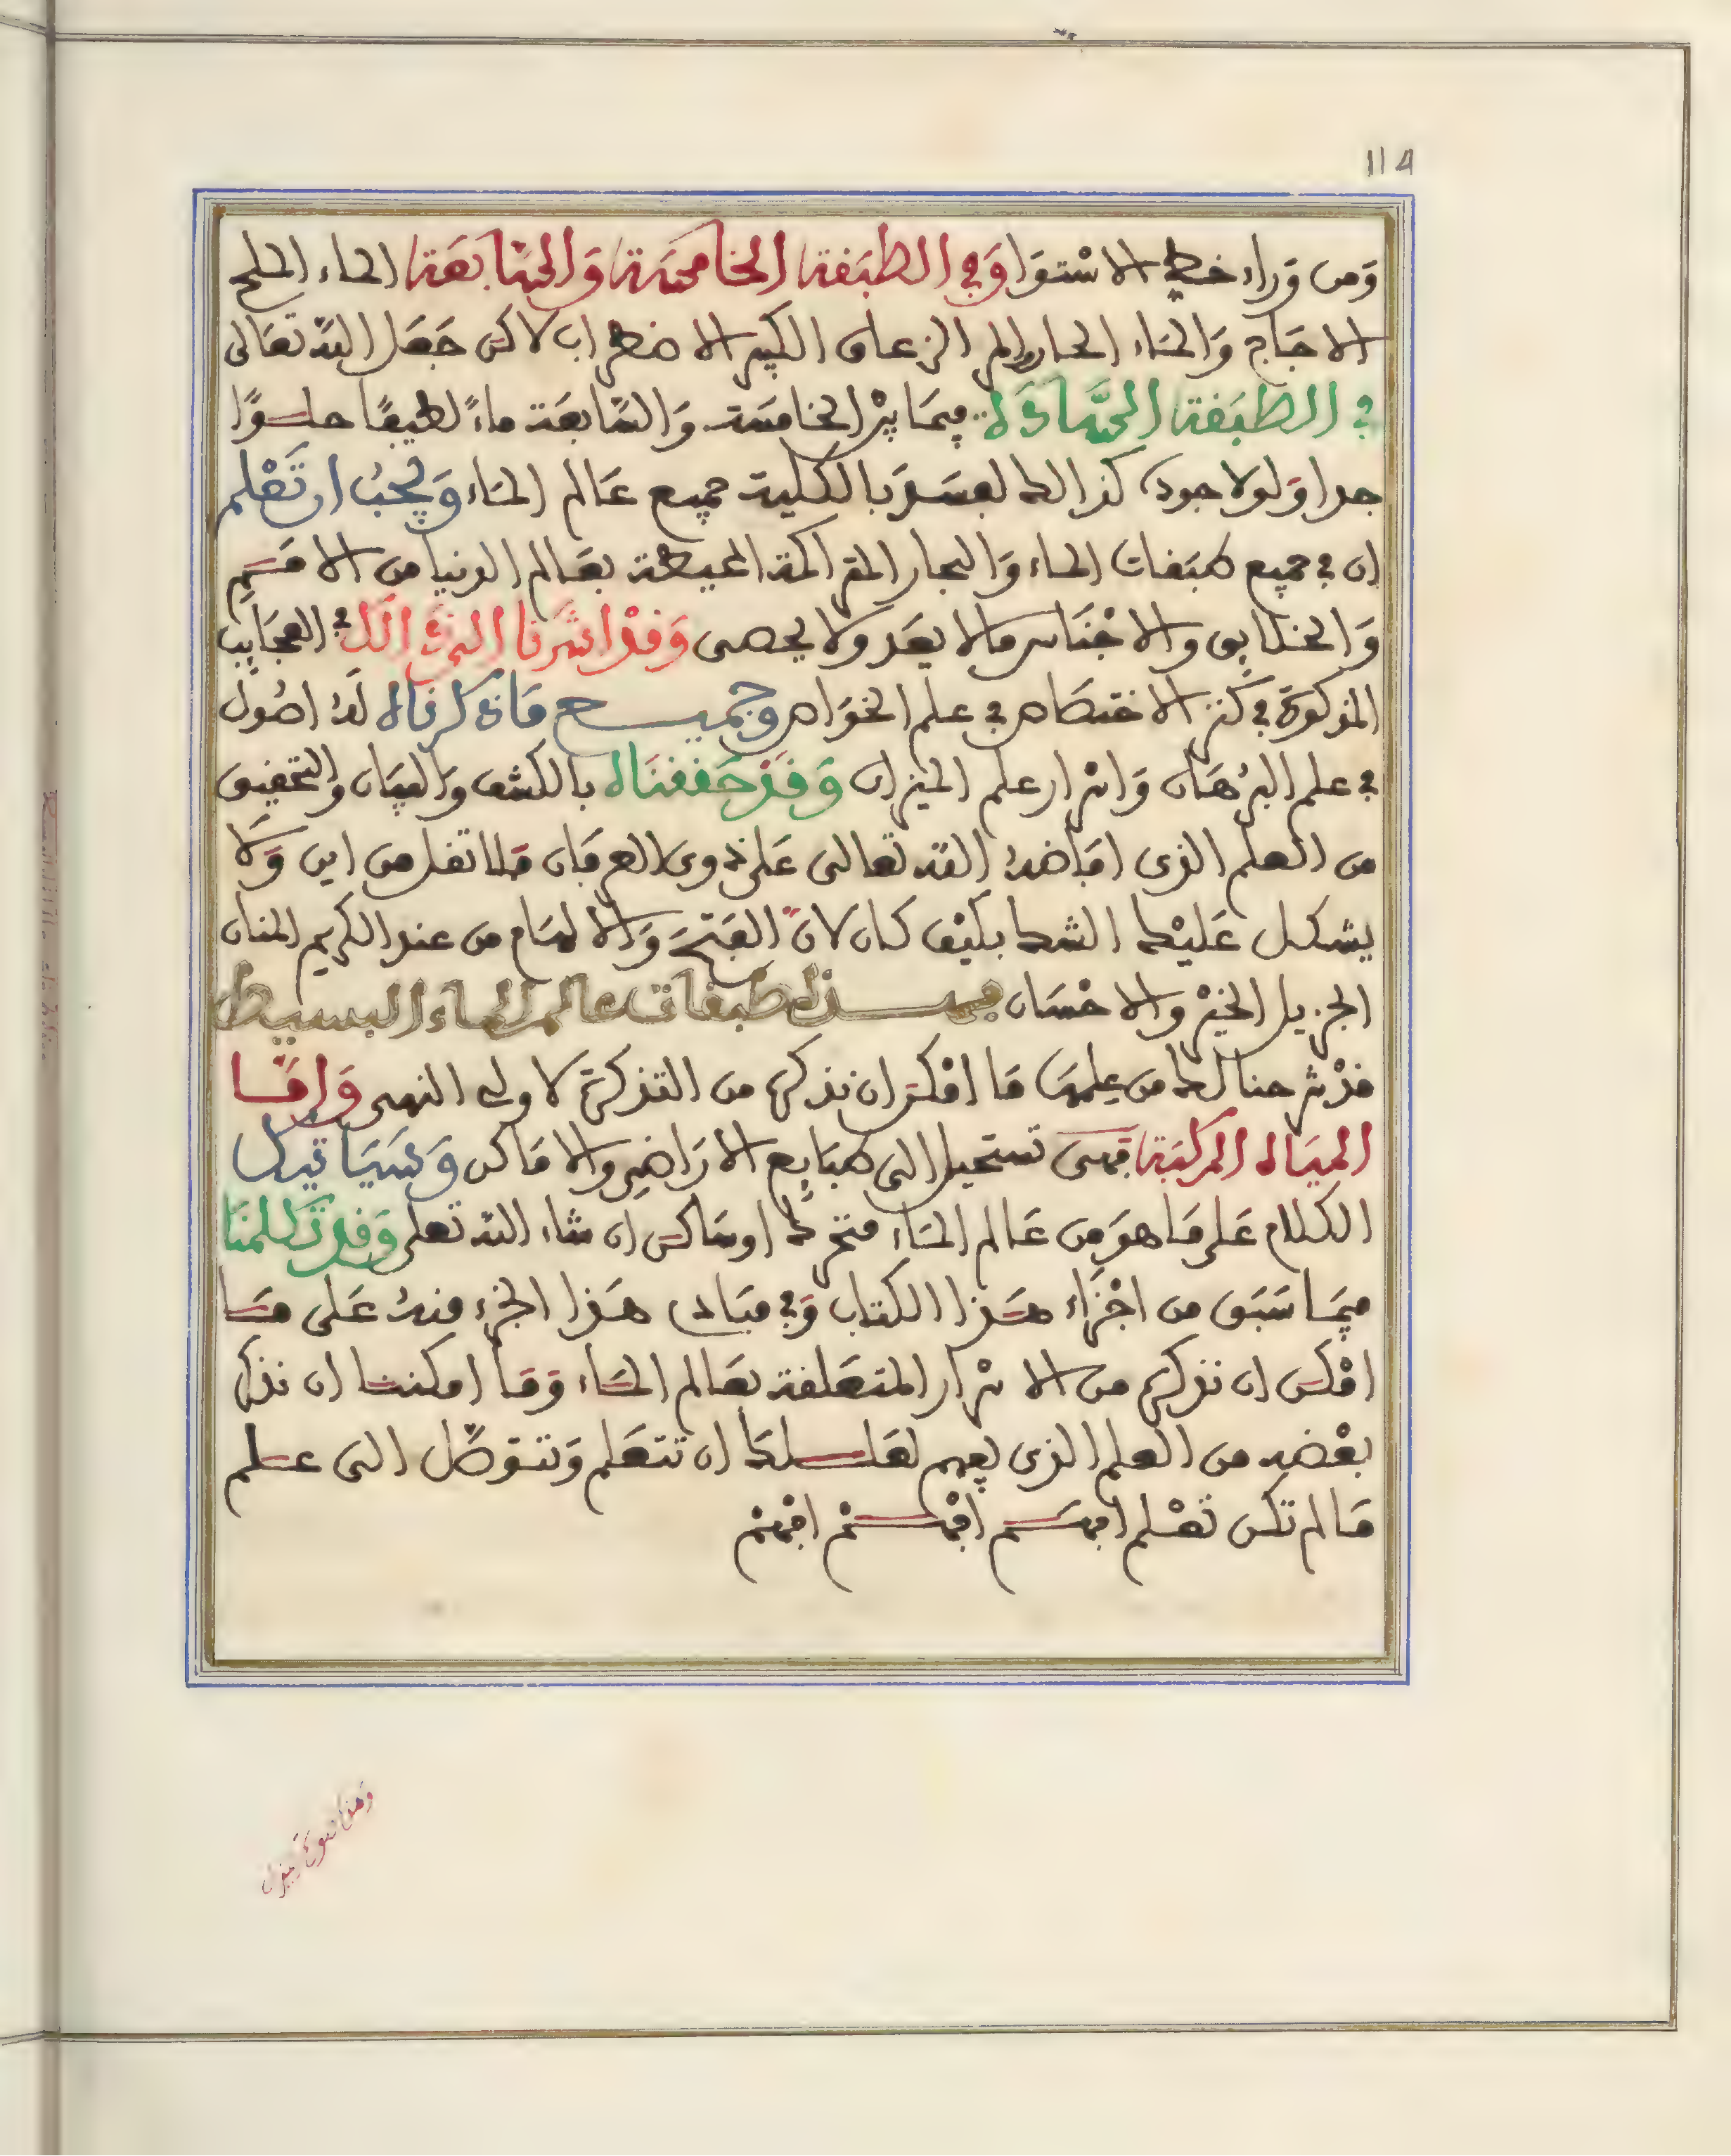 114
وَمن وَراء خط الاسْتوَا وَفي الطبَقة الخامسَة وَالسَّابعَة الماء الملح
الاجَاج وَالمَاء الحار والمر الزعاق الكثير الاضطراب لاكن جَعَل الله تعَالى
في الطبَقة السَّادسَة فيمَا بيْن الخامسَة وَالسَّابعَة ماءً لطيفًا حلوًا
جدا وَلولا جود كذالك لفسَد بالكلية جميع عَالم المَاء وَيجبُ ان تَعْلم
ان في جميع طبَقات الماء وَالبحار المتراكمة المحيطة بعَالم الدنيا من الامَم
وَالخلايق والاجْنَاس مالا يعَد ولا يحصى وَقدْ اشَرنا الى ذَالك في العجَايب
المذكورَة في كنز الاختصَاص في علم الخوَاص وجميع مَا ذكرناه لهُ اصُول
في علم البُرهَان وَاسْرار علم الميزان وَقَدْ حَققنَاه بالكشف وَالعيَان والتحقيق
من العلم الذي افاضهُ الله تعالى عَلى ذوى العرفان فلا تقل من اين وَلا
يشكل عَليْك الشك بكيْف كان لانّ الفتحَ وَالالهَام من عند الكريم المنان
الجزيل الخيْر والاحْسَان فهذه طبقات عالم الماء البسيط
قدْ شرحنا لك من علمهَا مَا امْكن ان نذكره من التذكرة لاولى النهى وَامَّا
الميَاه المركبَة فهىَ تستحيل الى طبَايع الارَاضي والامَاكن وَسَيَاتيك
الكلام عَلى مَا هوَ من عَالم المَاء متحرك او سَاكن ان شاء الله تعلى وَقد تكلمنَا
فيمَا سَبَق من اجْزَاء هَذا الكتاب وَفي مبَادى هَذا الجزء منهُ عَلى مَا
امْكن ان نذكره من الاسْرار المتعَلقة بعَالم المَاء وَمَا امكننا ان نذكر
بعْضه من العلم الذي يفهم لعَلك ان تتعَلم وَتتوَصّل الى علم
مَا لم تكن تعْلم افهَم افْهَمْ افهمْ